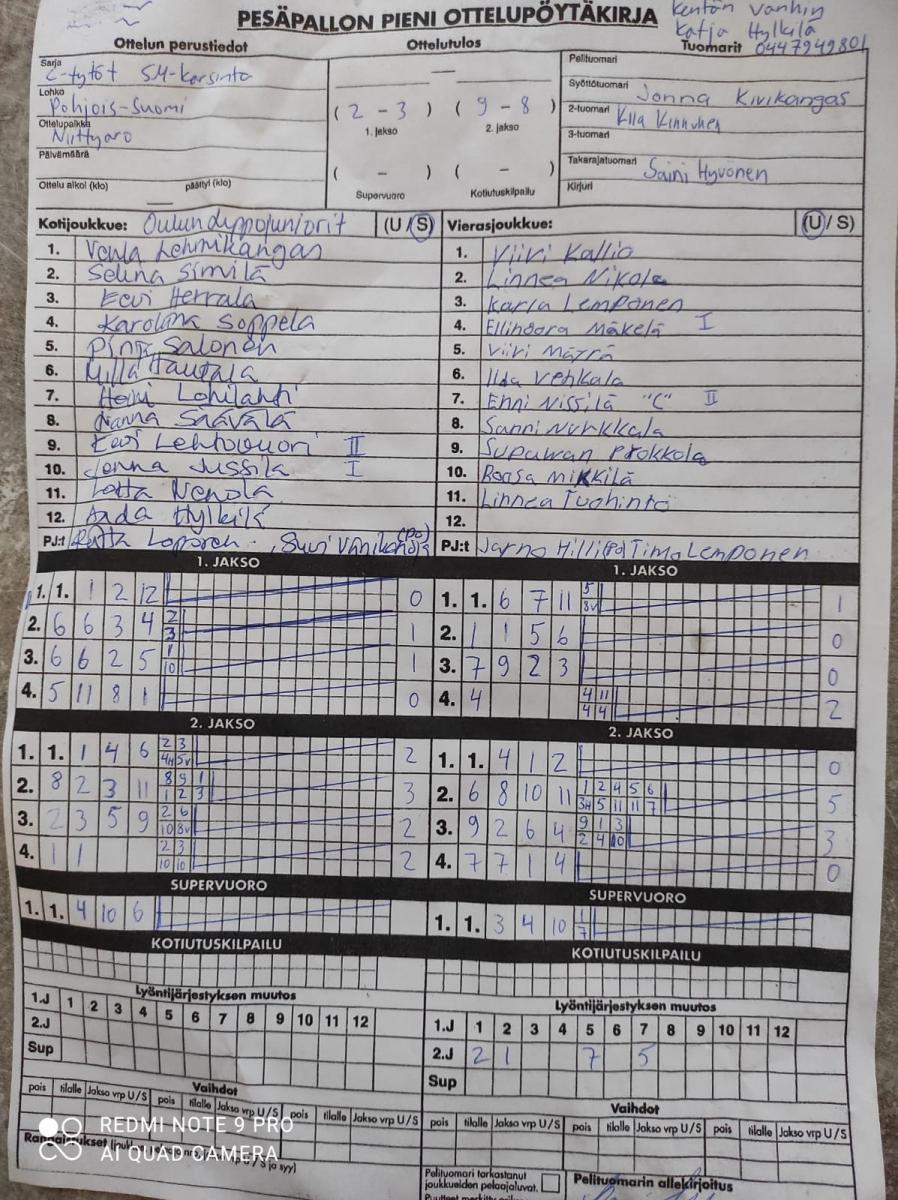 PESÄPALLON PIENI OTTELUPÖYTÄKIRJA
Kentän vanhin
Katja Hylkilä
0447949801
Ottelun perustiedot
Ottelutulos
Tuomarit
Sarja
C-tytöt SM-karsinta
Lohko
Pohjois-Suomi
Ottelupaikka
Niittyaro
Päivämäärä
Ottelu alkoi (klo) päättyi (klo)
( 2 - 3 ) ( 9 - 8 )
1. jakso 2. jakso
( - ) ( - )
Supervuoro Kotiutuskilpailu
Pelituomari
Syöttötuomari
Jonna Kivikangas
2-tuomari
Kinnunen
3-tuomari
Takarajatuomari
Saini Hyvönen
Kirjuri
Kotijoukkue: (U / S)
1. Venla Lehmikangas
2. Selina Similä
3. Eevi Herrala
4. Karolina Soppela
5. Pinja Salonen
6. Milla Hautala
7. Heini Lohilahti
8. Nanna Säävälä
9. Eevi Lehtovuori II
10. Jenna Jussila I
11. Lotta Nevola
12. Hylkilä
PJ:t
Vierasjoukkue: (U / S)
1. Viivi Kallio
2. Linnea Nikola
3. Karla Lemponen
4. Ellinoora Mäkelä I
5. Viivi
6. Iida Vehkala
7. Enni Nissilä "C" II
8. Sanni Nurkkala
9. Prokkola
10. Roosa Mikkilä
11. Linnea Tuohinto
12.
PJ:t Jarno Hilli (PO) Timo Lemponen
1. JAKSO
1. 1. 1 2 12 0
2. 6 6 3 4 2 3 1
3. 6 6 2 5 1 10 1
4. 5 11 8 1 0
1. JAKSO
1. 1. 6 7 11 5 3v 1
2. 1 1 5 6 0
3. 7 9 2 3 0
4. 4 4 11 4 4 2
2. JAKSO
1. 1. 1 4 6 2 3 4H 5v 2
2. 8 2 3 11 8 9 1 1 2 3 3
3. 2 3 5 9 2 6 10 8v 2
4. 1 1 2 3 10 10 2
2. JAKSO
1. 1. 4 1 2 0
2. 6 8 10 11 1 2 4 5 6 3H 5 11 11 7 5
3. 9 2 6 4 9 1 3 2 4 10 3
4. 7 7 1 4 0
SUPERVUORO
1. 1. 4 10 6
SUPERVUORO
1. 1. 3 4 10 1 7
KOTIUTUSKILPAILU
KOTIUTUSKILPAILU
Lyöntijärjestyksen muutos
1.J 1 2 3 4 5 6 7 8 9 10 11 12
2.J
Sup
Lyöntijärjestyksen muutos
1.J 1 2 3 4 5 6 7 8 9 10 11 12
2.J 2 1 7 5
Sup
Vaihdot
pois tilalle Jakso vrp U / S pois tilalle Jakso vrp U / S pois tilalle Jakso vrp U / S
Vaihdot
pois tilalle Jakso vrp U / S pois tilalle Jakso vrp U / S pois tilalle Jakso vrp U / S
REDMI NOTE 9 PRO
AI QUAD CAMERA
Pelituomari tarkastanut
joukkueiden pelaajaluvat.
Pelituomarin allekirjoitus